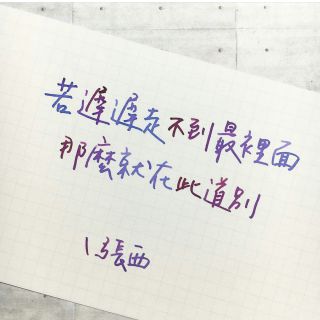 若遲遲走不到最裡面
那麼就在此道別
\張西